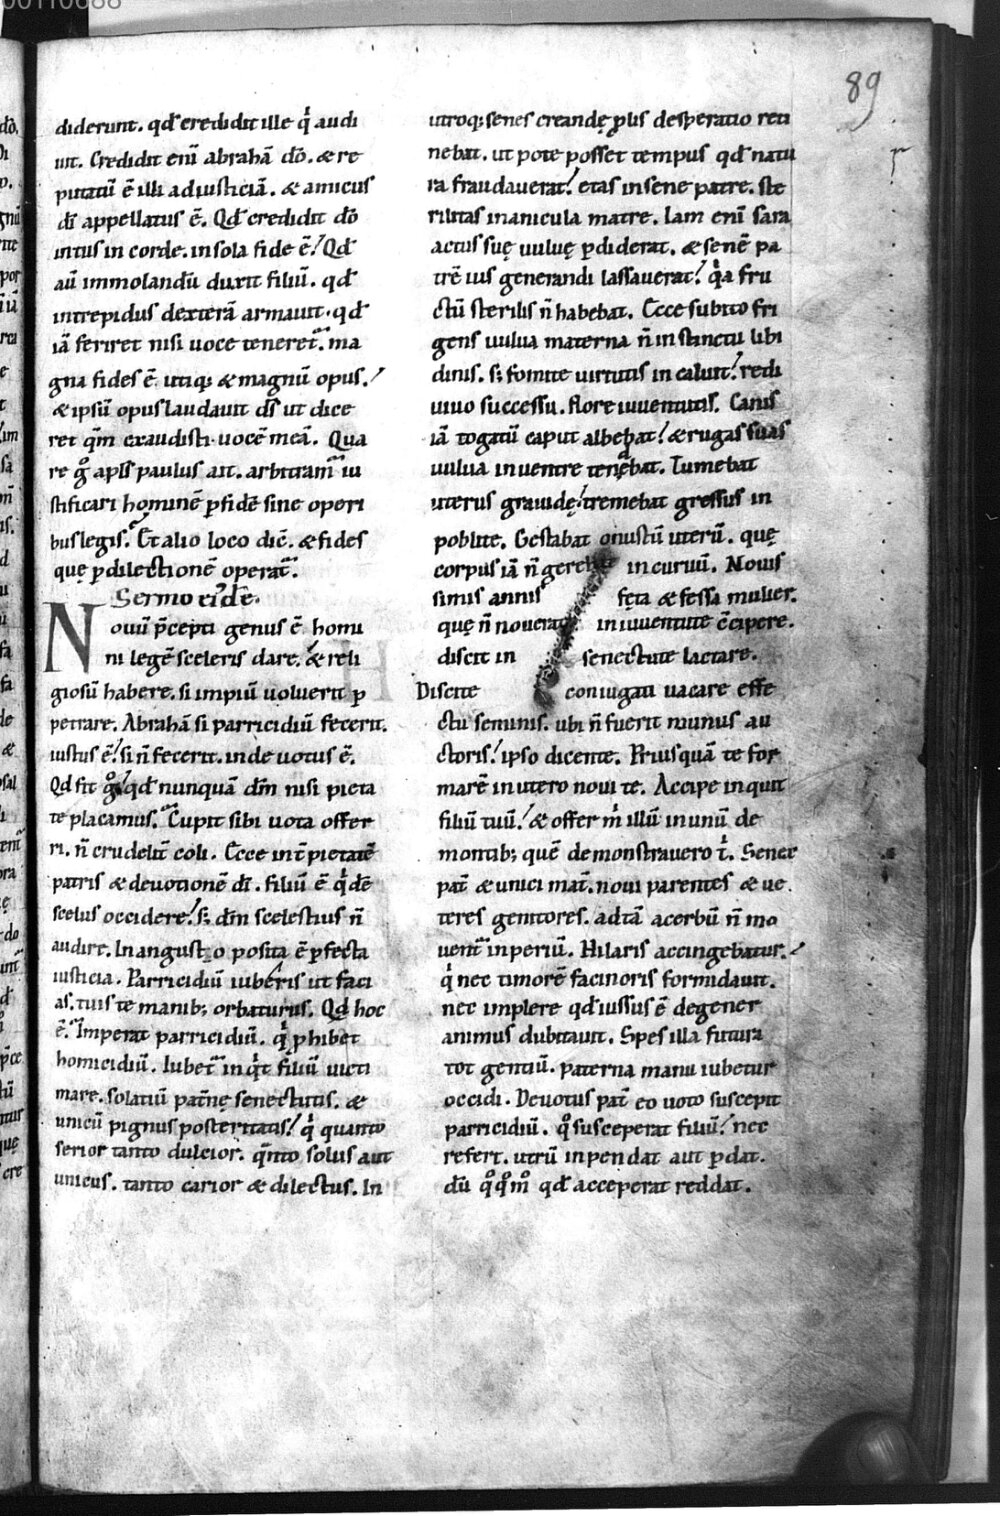 89
diderunt. qd̄ credidit ille q̇ audi
uit. Credidit eni̅ abrahā dō. & re
putatū ē illi ad iusticiā. & amicus
dī appellatus ē. Qd̄ credidit dō
intus in corde. in sola fide ē! Qd̄
aū immolandū duxit filiū. qd̄
intrepidus dexterā armauit. qd̄
iā feriret nisi uoce teneret̃. ma
gna fides ē utiq; & magnū opus!
& ipsū opus laudauit ds̄ ut dice
ret qm̄ exaudisti uocē meā. Qua
re g̊ apls̄ paulus ait. arbitram̃ iu
stificari hominē ꝑ fidē sine operi
bus legis. Et alio loco dic̄. & fides
quę ꝑ dilectionē operat̃.
Sermo eiu̅de̅.
Nouū p̄cepti genus ē homi
ni legē sceleris dare. & reli
giosū habere. si impiū uoluerit ꝑ
petrare. Abrahā si parricidiū fecerit.
iustus ē! si n̄ fecerit. indeuotus ē.
Qd̄ fit g̊! qd̄ nunquā dm̄ nisi pieta
te placamus. Cupit sibi uota offer
ri. n̄ crudelit̄ coli. Ecce int̄ pietatē
patris & deuotionē dī. filiū ē q̇dē
scelus occidere! s; dm̄ scelestius n̄
audire. In angusto posita ē ꝑfecta
iusticia. Parricidiū iuberis ut faci
as. tuis te manib; orbaturus. Qd̄ hoc
ē. Imperat parricidiū. q̇ ꝓhibet
homicidiū. Iubet̃ inq̇t filiū uicti
mare. solatiū pat̄nę senectutis. &
unicū pignus posteritatis! q̇ quanto
serior tanto dulcior. q̄nto solus aut
unicus. tanto carior & dilectus. In
utroq; senes creandę ꝓlis desꝑatio reti
nebat. ut pote posset tempus qd̄ natu
ra fraudauerat! etas in sene patre. ste
rilitas in anicula matre. Iam eni̅ sara
actus suę uuluę ꝑdiderat. & senē pa
trē ius generandi lassauerat! q̇a fru
ctū sterilis n̄ habebat. Ecce subito fri
gens uulua materna n̄ instinctu libi
dinis. s; fomite uirtutis incaluit! redi
uiuo successu. flore iuuentutis. Canis
iā togatū caput albebat! & rugas suas
uulua in uentre tenebat. Tumebat
uterus grauidę! tremebat gressus in
poblite. Gestabat onustū uterū. quę
corpus iā n̄ incuruū. Nouis
simis annis fęta & fessa mulier.
quę n̄ nouerat in iuuentute c̄cipere.
discit in senectute lactare.
Discite coniugati uacare effe
ctū seminis. ubi n̄ fuerit munus au
ctoris! ipso dicente. Priusquā te for
marē in utero noui te. Accipe inquit
filiū tuū! & offer m̄ illū in unū de
montib; quē demonstrauero t̄. Senex
pat̄ & unici mat̄. noui parentes & ue
teres genitores. ad tā acerbū n̄ mo
uent̃ inperiū. Hilaris accingebatur!
q̇ nec timorē facinoris formidauit.
nec implere qd̄ iussus ē degener
animus dubitauit. Spes illa futura
tot gentiū. paterna manu iubetur
occidi. Deuotus pat̄ eo uoto suscepit
parricidiū. q̊ susceperat filiū! nec
refert. utrū inpendat aut ꝑdat.
dū q̊q̊m̊ qd̄ acceperat reddat.